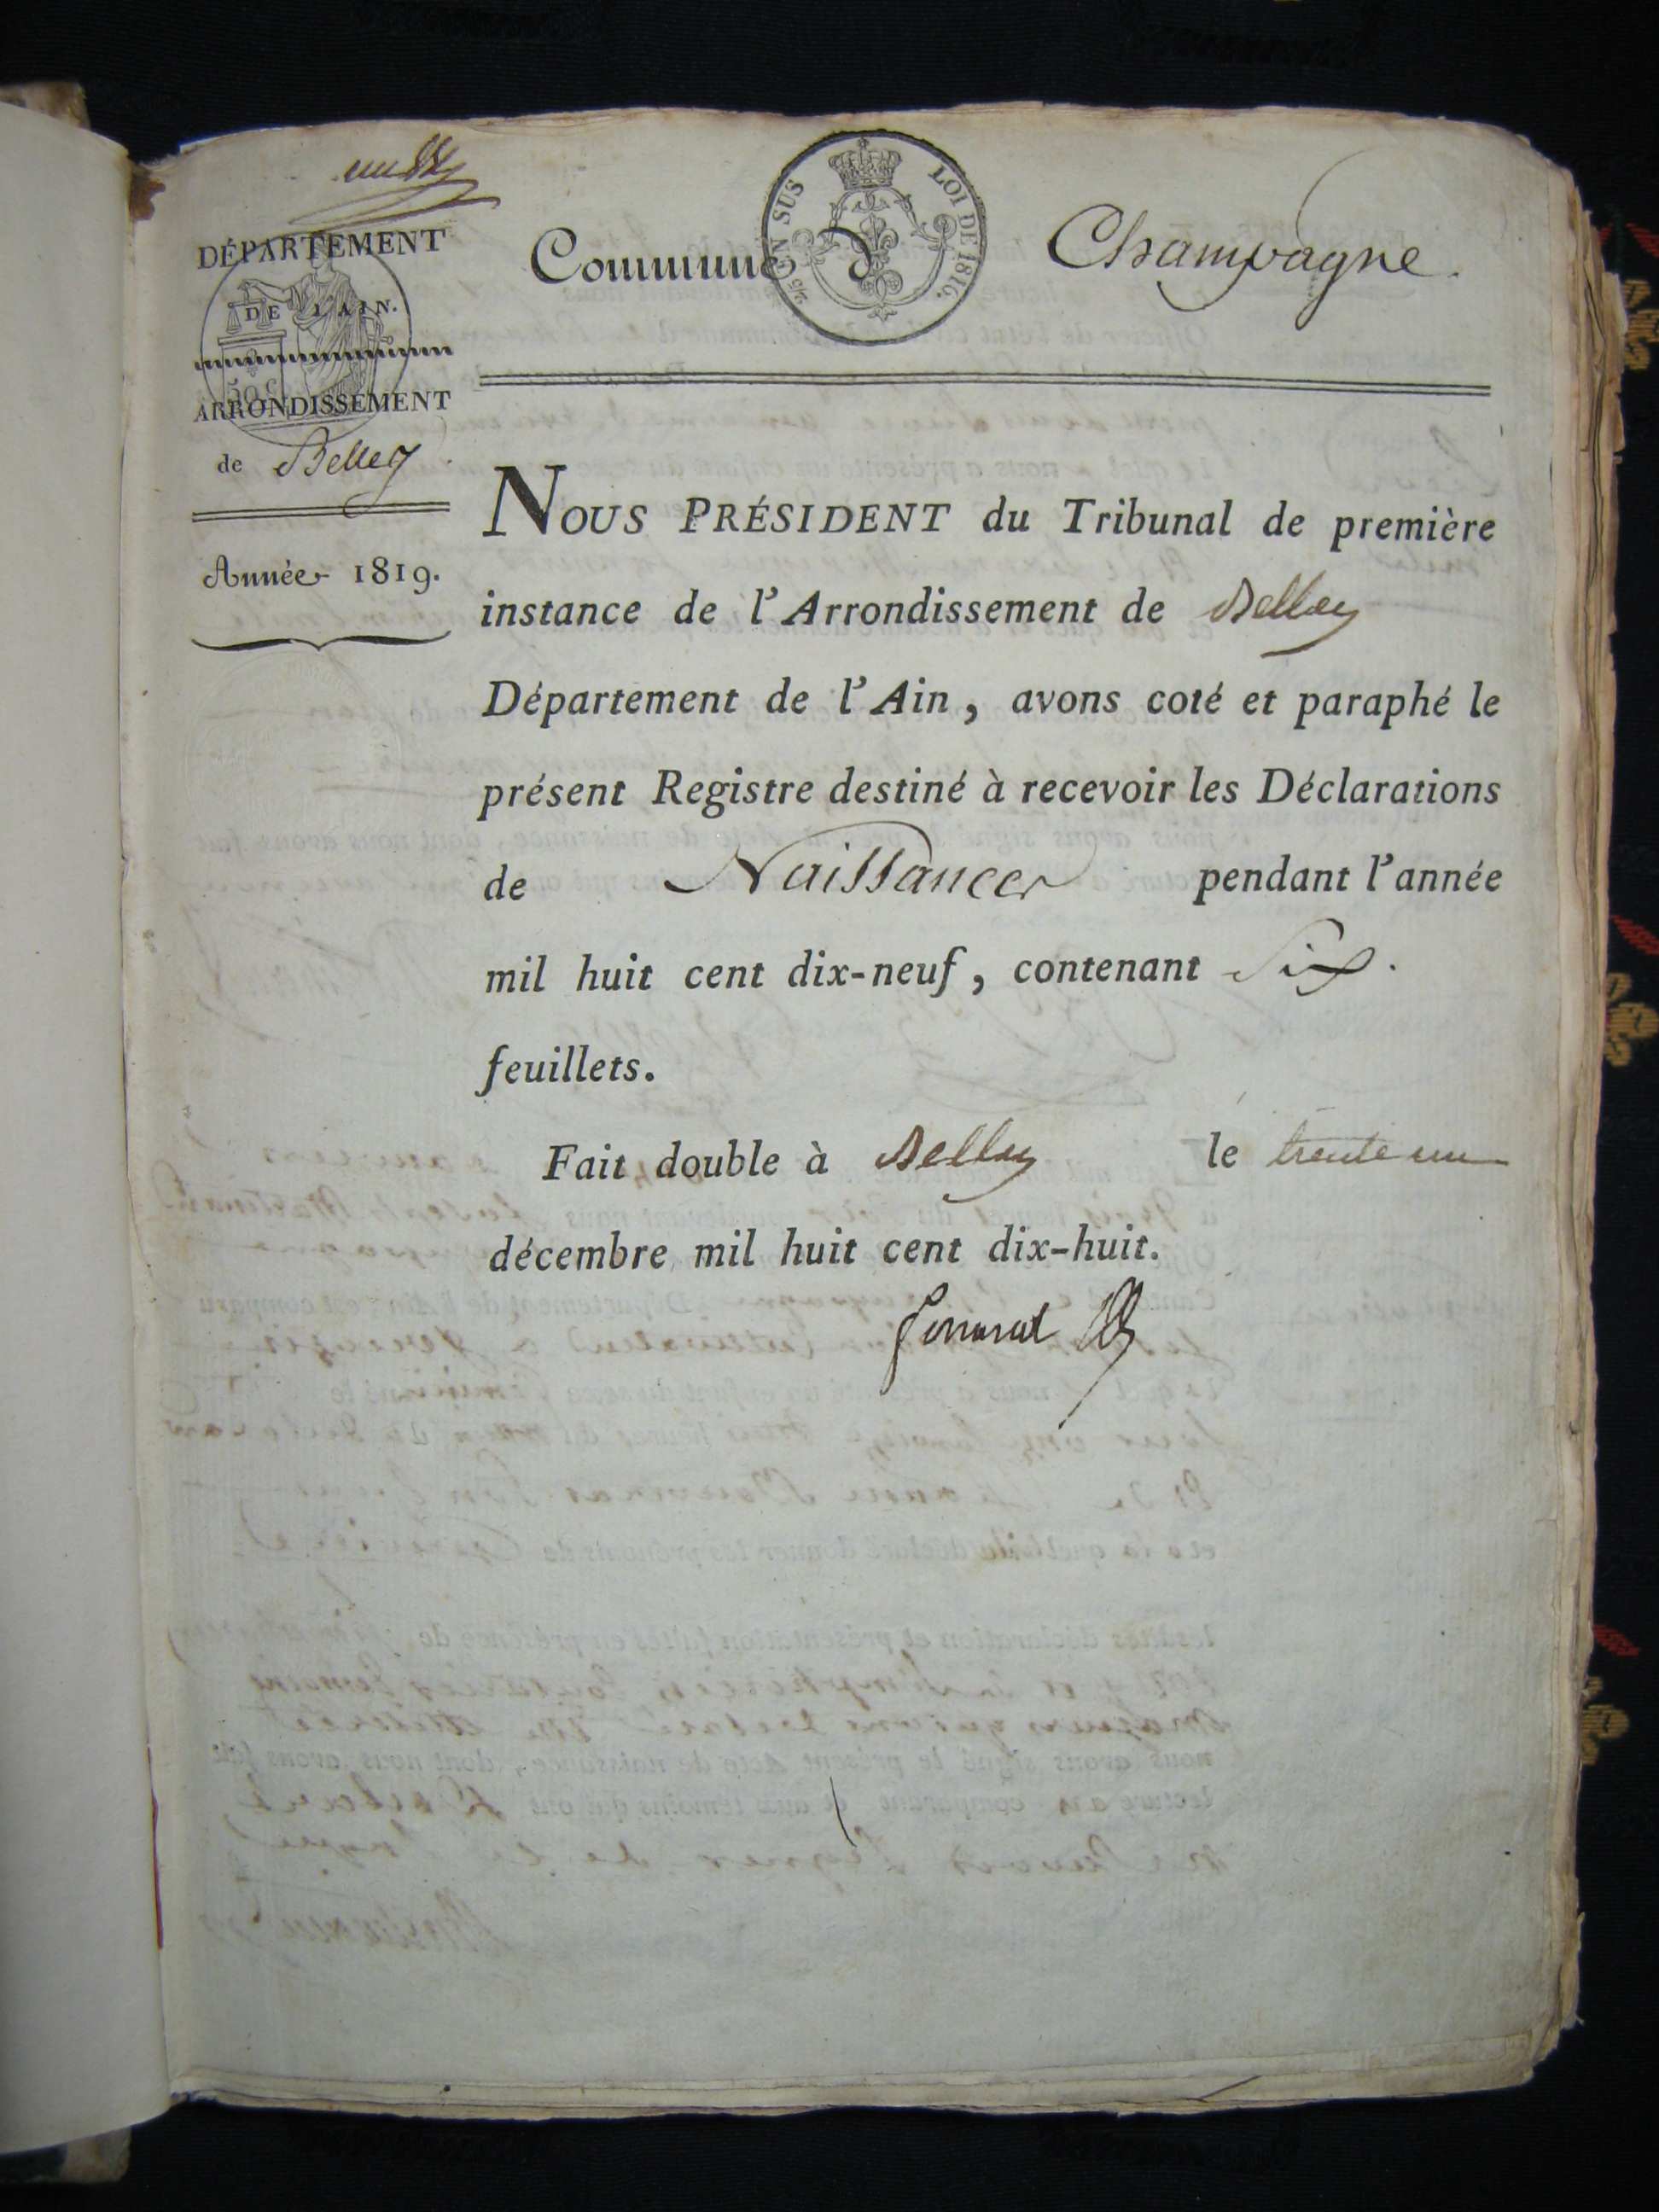 un
DÉPARTEMENT
DE L'AIN.
50 c
ARRONDISSEMENT
de Belley
Année 1819.
Commune d
EN SUS
LOI DE 1816.
Champagne.
NOUS PRÉSIDENT du Tribunal de première
instance de l'Arrondissement de Belley
Département de l'Ain, avons coté et paraphé le
présent Registre destiné à recevoir les Déclarations
de Naissances pendant l'année
mil huit cent dix-neuf, contenant Six.
feuillets.
Fait double à Belley le trente un
décembre mil huit cent dix-huit.